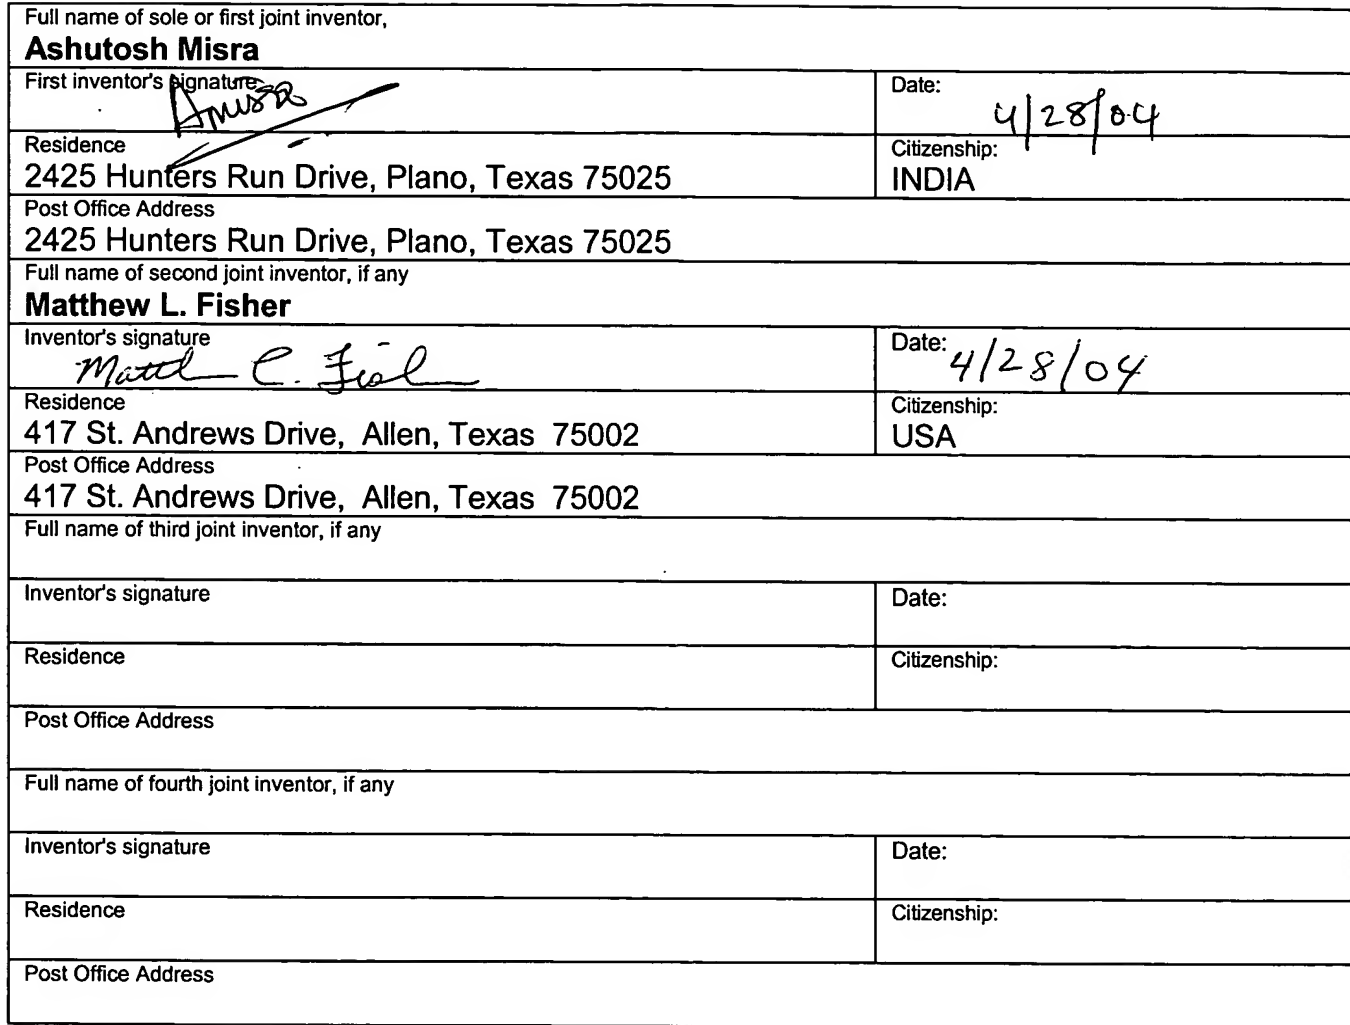 Full name of sole or first joint inventor,
Ashutosh Misra
First inventor's signature
Date: 4/28/04
Residence
2425 Hunters Run Drive, Plano, Texas 75025
Citizenship:
INDIA
Post Office Address
2425 Hunters Run Drive, Plano, Texas 75025
Full name of second joint inventor, if any
Matthew L. Fisher
Inventor's signature
Date: 4/28/04
Residence
417 St. Andrews Drive, Allen, Texas 75002
Citizenship:
USA
Post Office Address
417 St. Andrews Drive, Allen, Texas 75002
Full name of third joint inventor, if any
Inventor's signature
Date:
Residence
Citizenship:
Post Office Address
Full name of fourth joint inventor, if any
Inventor's signature
Date:
Residence
Citizenship:
Post Office Address